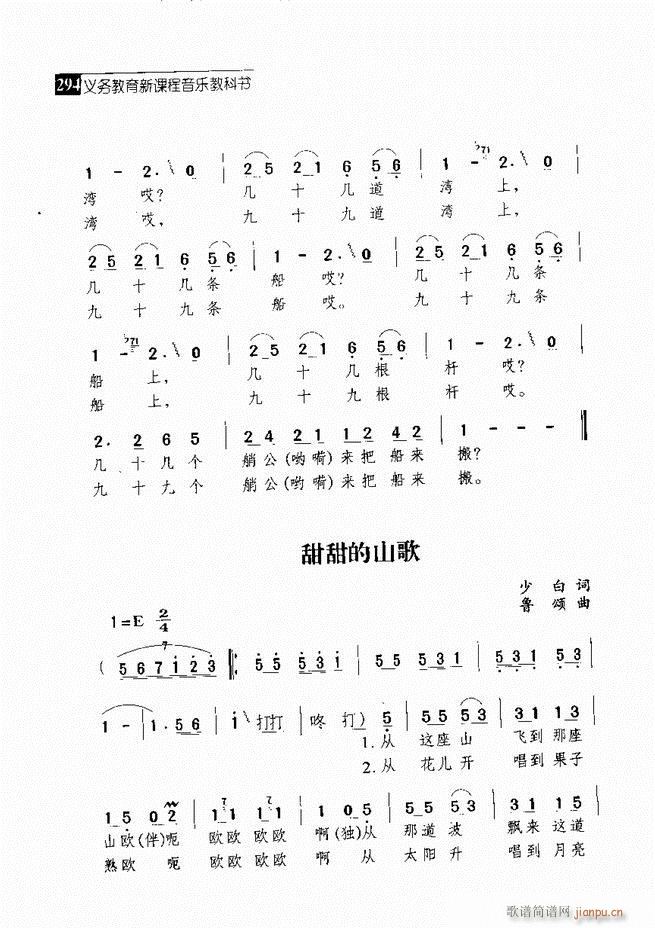 294 义务教育新课程音乐教科书
1 - 2. \ 0 | 2 5 2 1 6 5 6 | 1 - 2. \ 0 |
湾 哎? 几 十 几 道 湾 上,
湾 哎, 九 十 九 道 湾 上,
2 5 2 1 6 5 6 | 1 - 2. \ 0 | 2 5 2 1 6 5 6 |
几 十 几 条 船 哎? 几 十 几 条
九 十 九 条 船 哎。 九 十 九 条
1 - 2. \ 0 | 2 5 2 1 6 5 6 | 1 - 2. \ 0 |
船 上, 几 十 几 根 杆 哎?
船 上, 九 十 九 根 杆 哎。
2. 2 6 5 | 2 4 2 1 1 2 4 2 | 1 - - - ‖
几 十 几 个 艄公(哟嗬)来把 船来 搬?
九 十 九 个 艄公(哟嗬)来把 船来 搬。
甜甜的山歌
少 白 词
1=E 2/4 鲁 颂 曲
( 5 6 7 1 2 3 ‖: 5 5 5 3 1 | 5 5 5 3 1 | 5 3 1 5 3 1 |
1 - | 1. 5 6 | i 打打 | 咚 打) 5 | 5 5 5 5 3 | 3 1 1 1 |
1. 从 这座 山 飞到 那座
2. 从 花儿 开 唱到 果子
1 5 0 2 | 1 1 1 1 | 1 0 5 | 5 5 5 3 | 3 1 1 5 |
山欧(伴)呃 欧欧 欧欧 啊(独)从 那道 波 飘来 这道
熟欧 呃 欧欧 欧欧 啊 从 太阳 升 唱到 月亮
歌谱简谱网 jianpu.cn